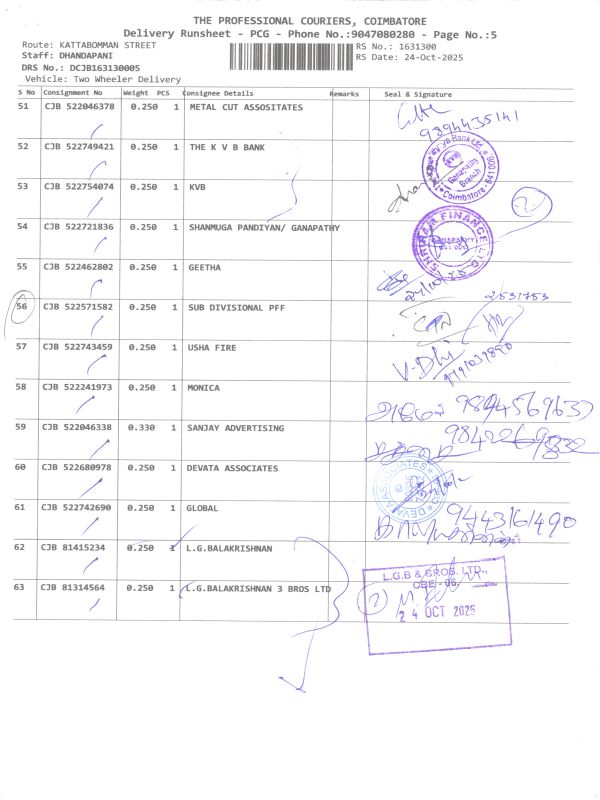 THE PROFESSIONAL COURIERS, COIMBATORE
Delivery Runsheet - PCG - Phone No.:9047080280 - Page No.:5
Route: KATTABOMMAN STREET RS No.: 1631300
Staff: DHANDAPANI RS Date: 24-Oct-2025
DRS No.: DCJB163130005
Vehicle: Two Wheeler Delivery
S No Consignment No Weight PCS Consignee Details Remarks Seal & Signature
51 CJB 522046378 0.250 1 METAL CUT ASSOSITATES
9394435141
52 CJB 522749421 0.250 1 THE K V B BANK
Ganapathy
Branch
Coimbatore - 641006
53 CJB 522754074 0.250 1 KVB
2
54 CJB 522721836 0.250 1 SHANMUGA PANDIYAN/ GANAPATHY
SHRIRAM FINANCE LTD.
55 CJB 522462802 0.250 1 GEETHA
24/10/25
56 CJB 522571582 0.250 1 SUB DIVISIONAL PFF
2531753
57 CJB 522743459 0.250 1 USHA FIRE
V-Dhi
58 CJB 522241973 0.250 1 MONICA
59 CJB 522046338 0.330 1 SANJAY ADVERTISING
60 CJB 522680978 0.250 1 DEVATA ASSOCIATES
61 CJB 522742690 0.250 1 GLOBAL
9443161490
62 CJB 81415234 0.250 1 L.G.BALAKRISHNAN
63 CJB 81314564 0.250 1 L.G.BALAKRISHNAN 3 BROS LTD
L.G.B & BROS. LTD.,
CBE - 06.
2
24 OCT 2025